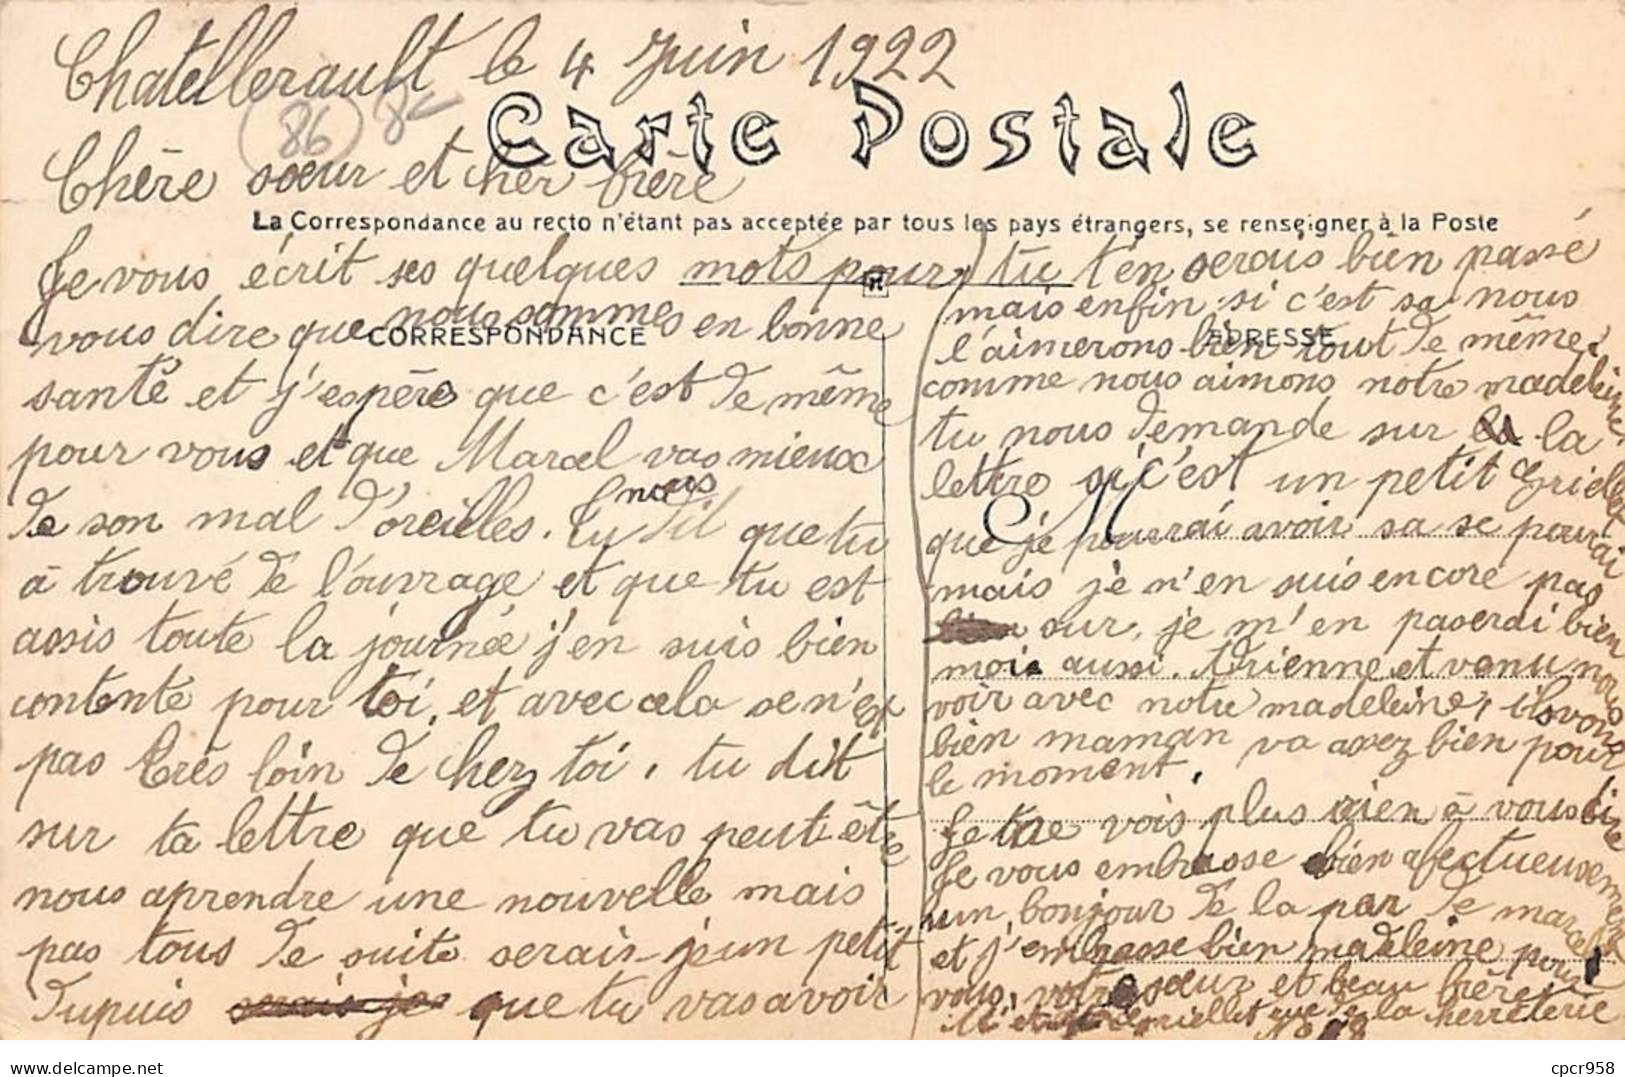 Chatellerault le 4 Juin 1922
(86)
Carte Postale
Chère sœur et cher frère
La Correspondance au recto n'étant pas acceptée par tous les pays étrangers, se renseigner à la Poste
CORRESPONDANCE
ADRESSE
Je vous écrit ses quelques mots pour
vous dire que nous sommes en bonne
santé et j'espère que c'est de même
pour vous et que Marcel vas mieux
de son mal d'oreilles. Tu nous dit que tu
à trouvé de l'ouvrage et que tu est
assis toute la journée j'en suis bien
contente pour toi, et avec cela se n'est
pas très loin de chez toi, tu dit
sur ta lettre que tu vas peut être
nous aprendre une nouvelle mais
pas tous de suite serais-je un petit
Dupuis que tu vas avoir
tu t'en serais bien passé
mais enfin si c'est sa nous
l'aimerons bien tout de même,
comme nous aimons notre madeleine,
tu nous demande sur la
lettre si c'est un petit
M
que je pourrai avoir sa se pourrai
mais je n'en suis encore pas
sur, je m'en paserai bien
moi aussi. Adrienne et venu nous
voir avec notre madeleine, ils vont
bien maman va assez bien pour
le moment,
Je ne vois plus rien à vous dire
Je vous embrasse bien afectueusement
un bonjour de la par de marcel
et j'embrasse bien madeleine pour
vous, votre sœur et beau frère
cpcr958